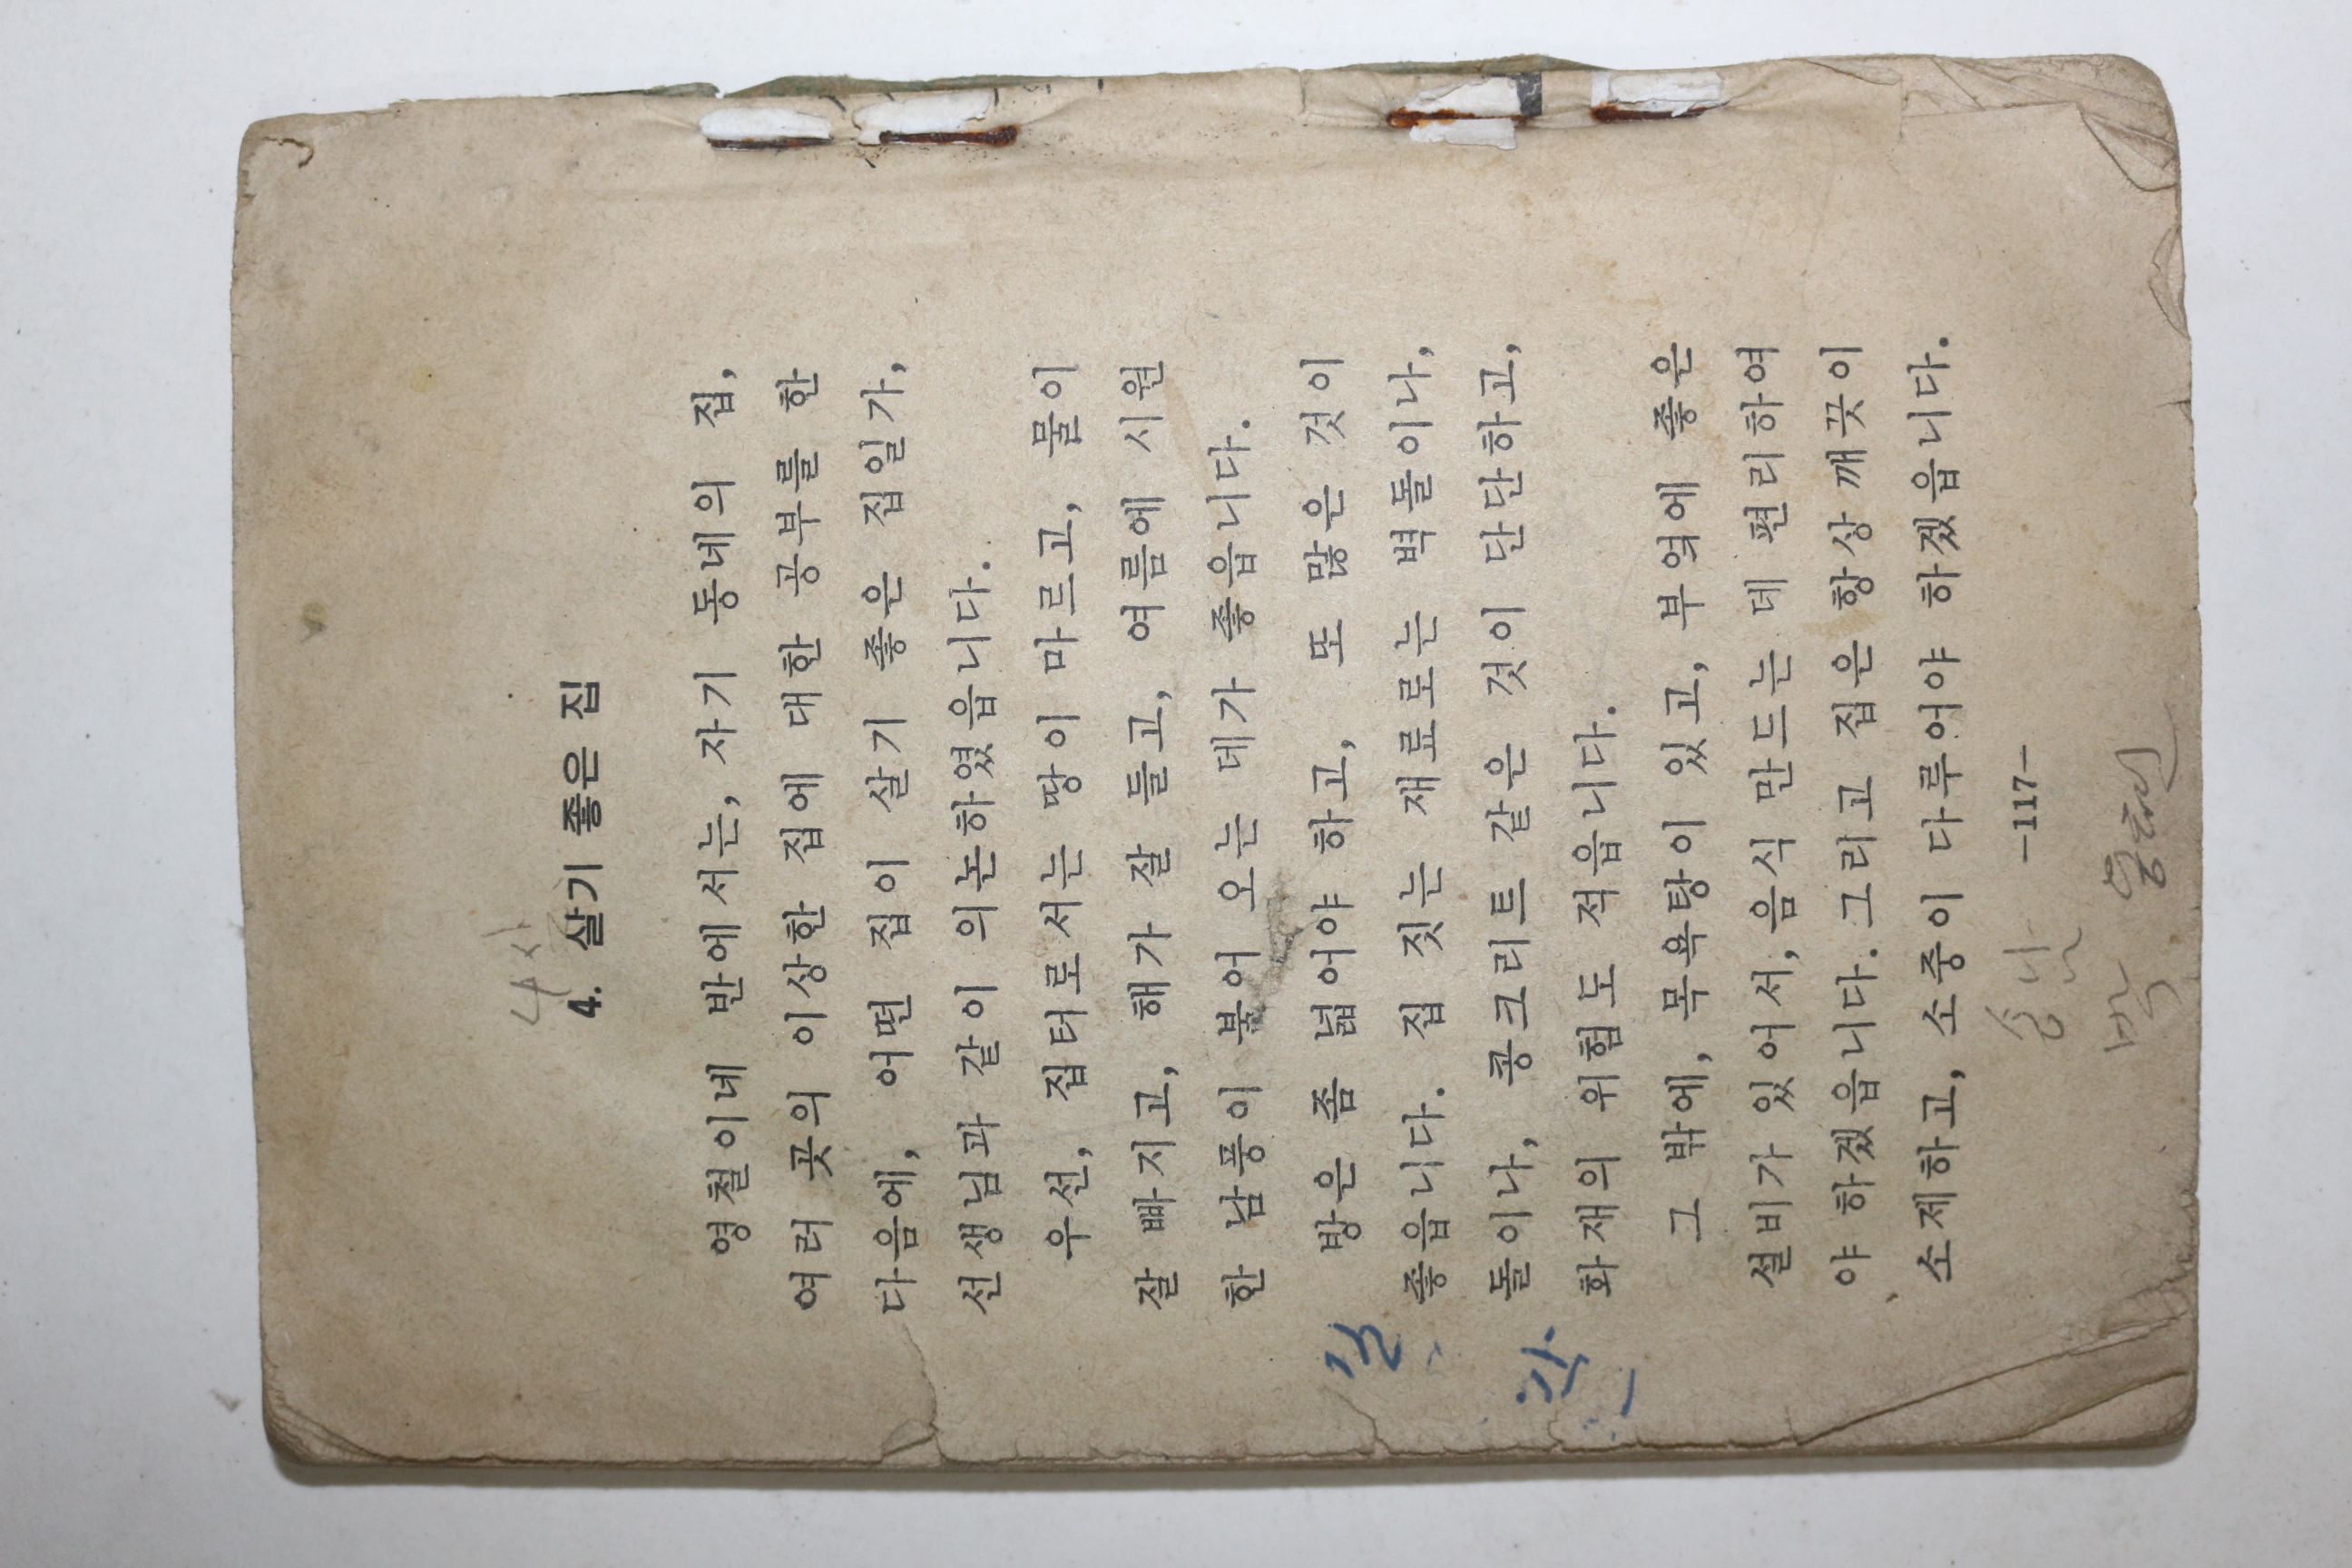 4 살
4. 살기 좋은 집
영철이네 반에서는, 자기 동네의 집,
여러 곳의 이상한 집에 대한 공부를 한
다음에, 어떤 집이 살기 좋은 집일가,
선생님과 같이 의논하였읍니다.
우선, 집터로서는 땅이 마르고, 물이
잘 빠지고, 해가 잘 들고, 여름에 시원
한 남풍이 불어 오는 데가 좋읍니다.
방은 좀 넓어야 하고, 또 많은 것이
좋읍니다. 집 짓는 재료로는 벽돌이나,
돌이나, 콩크리트 같은 것이 단단하고,
화재의 위험도 적읍니다.
그 밖에, 목욕탕이 있고, 부엌에 좋은
설비가 있어서, 음식 만드는 데 편리하여
야 하겠읍니다. 그리고 집은 항상 깨끗이
소제하고, 소중이 다루어야 하겠읍니다.
—117—
박